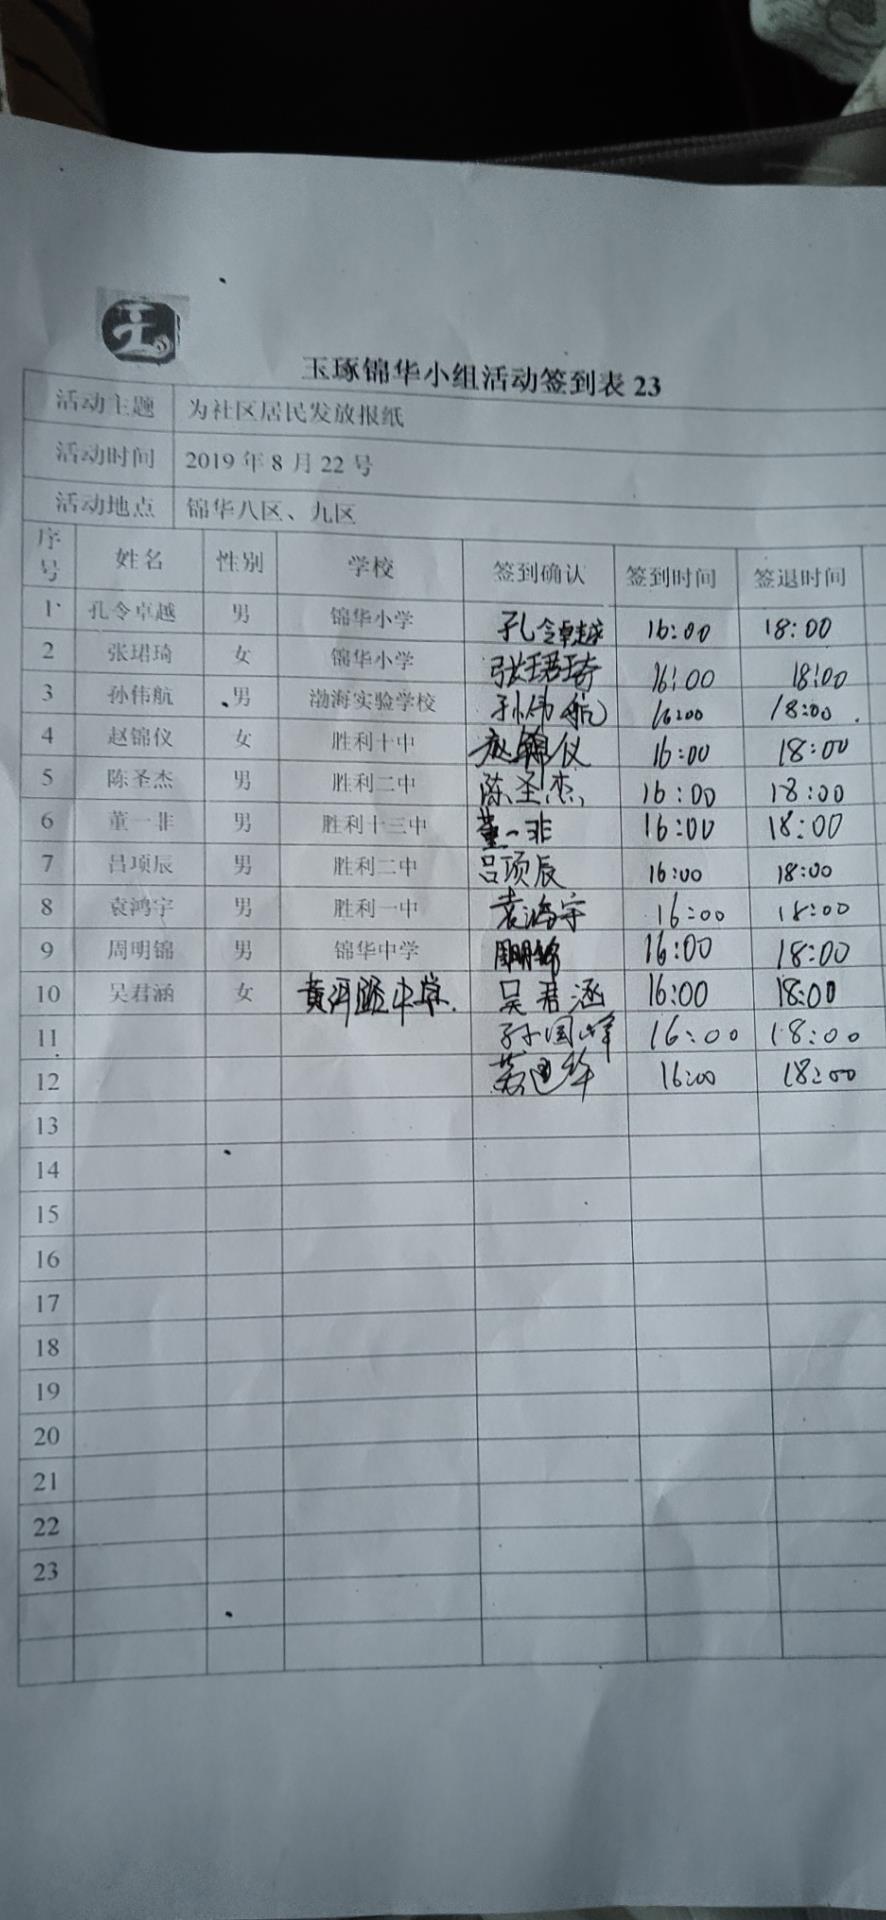 玉琢锦华小组活动签到表 23
活动主题 为社区居民发放报纸
活动时间 2019 年 8 月 22 号
活动地点 锦华八区、九区
序号 姓名 性别 学校 签到确认 签到时间 签退时间
1 孔令卓越 男 锦华小学 孔令卓越 16:00 18:00
2 张珺琦 女 锦华小学 张珺琦 16:00 18:00
3 孙伟航 男 渤海实验学校 孙伟航 16:00 18:00
4 赵锦仪 女 胜利十中 赵锦仪 16:00 18:00
5 陈圣杰 男 胜利二中 陈圣杰 16:00 18:00
6 董一非 男 胜利十三中 董一非 16:00 18:00
7 吕项辰 男 胜利二中 吕项辰 16:00 18:00
8 袁鸿宇 男 胜利一中 袁鸿宇 16:00 18:00
9 周明锦 男 锦华中学 周明锦 16:00 18:00
10 吴君涵 女 黄河路中学 吴君涵 16:00 18:00
11 孙国峰 16:00 18:00
12 16:00 18:00
13
14
15
16
17
18
19
20
21
22
23